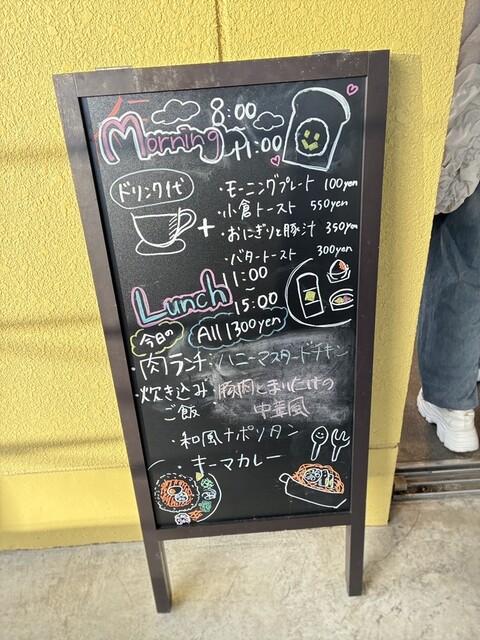 Morning
8:00
~
11:00
ドリンク代
+
・モーニングプレート 100yen
・小倉トースト 550yen
・おにぎりと豚汁 350yen
・バタートースト 300yen
Lunch
11:00
~
15:00
今日の
All 1300yen
・肉ランチ：ハニーマスタードチキン
・炊き込みご飯：豚肉とまいたけの
中華風
・和風ナポリタン
キーマカレー